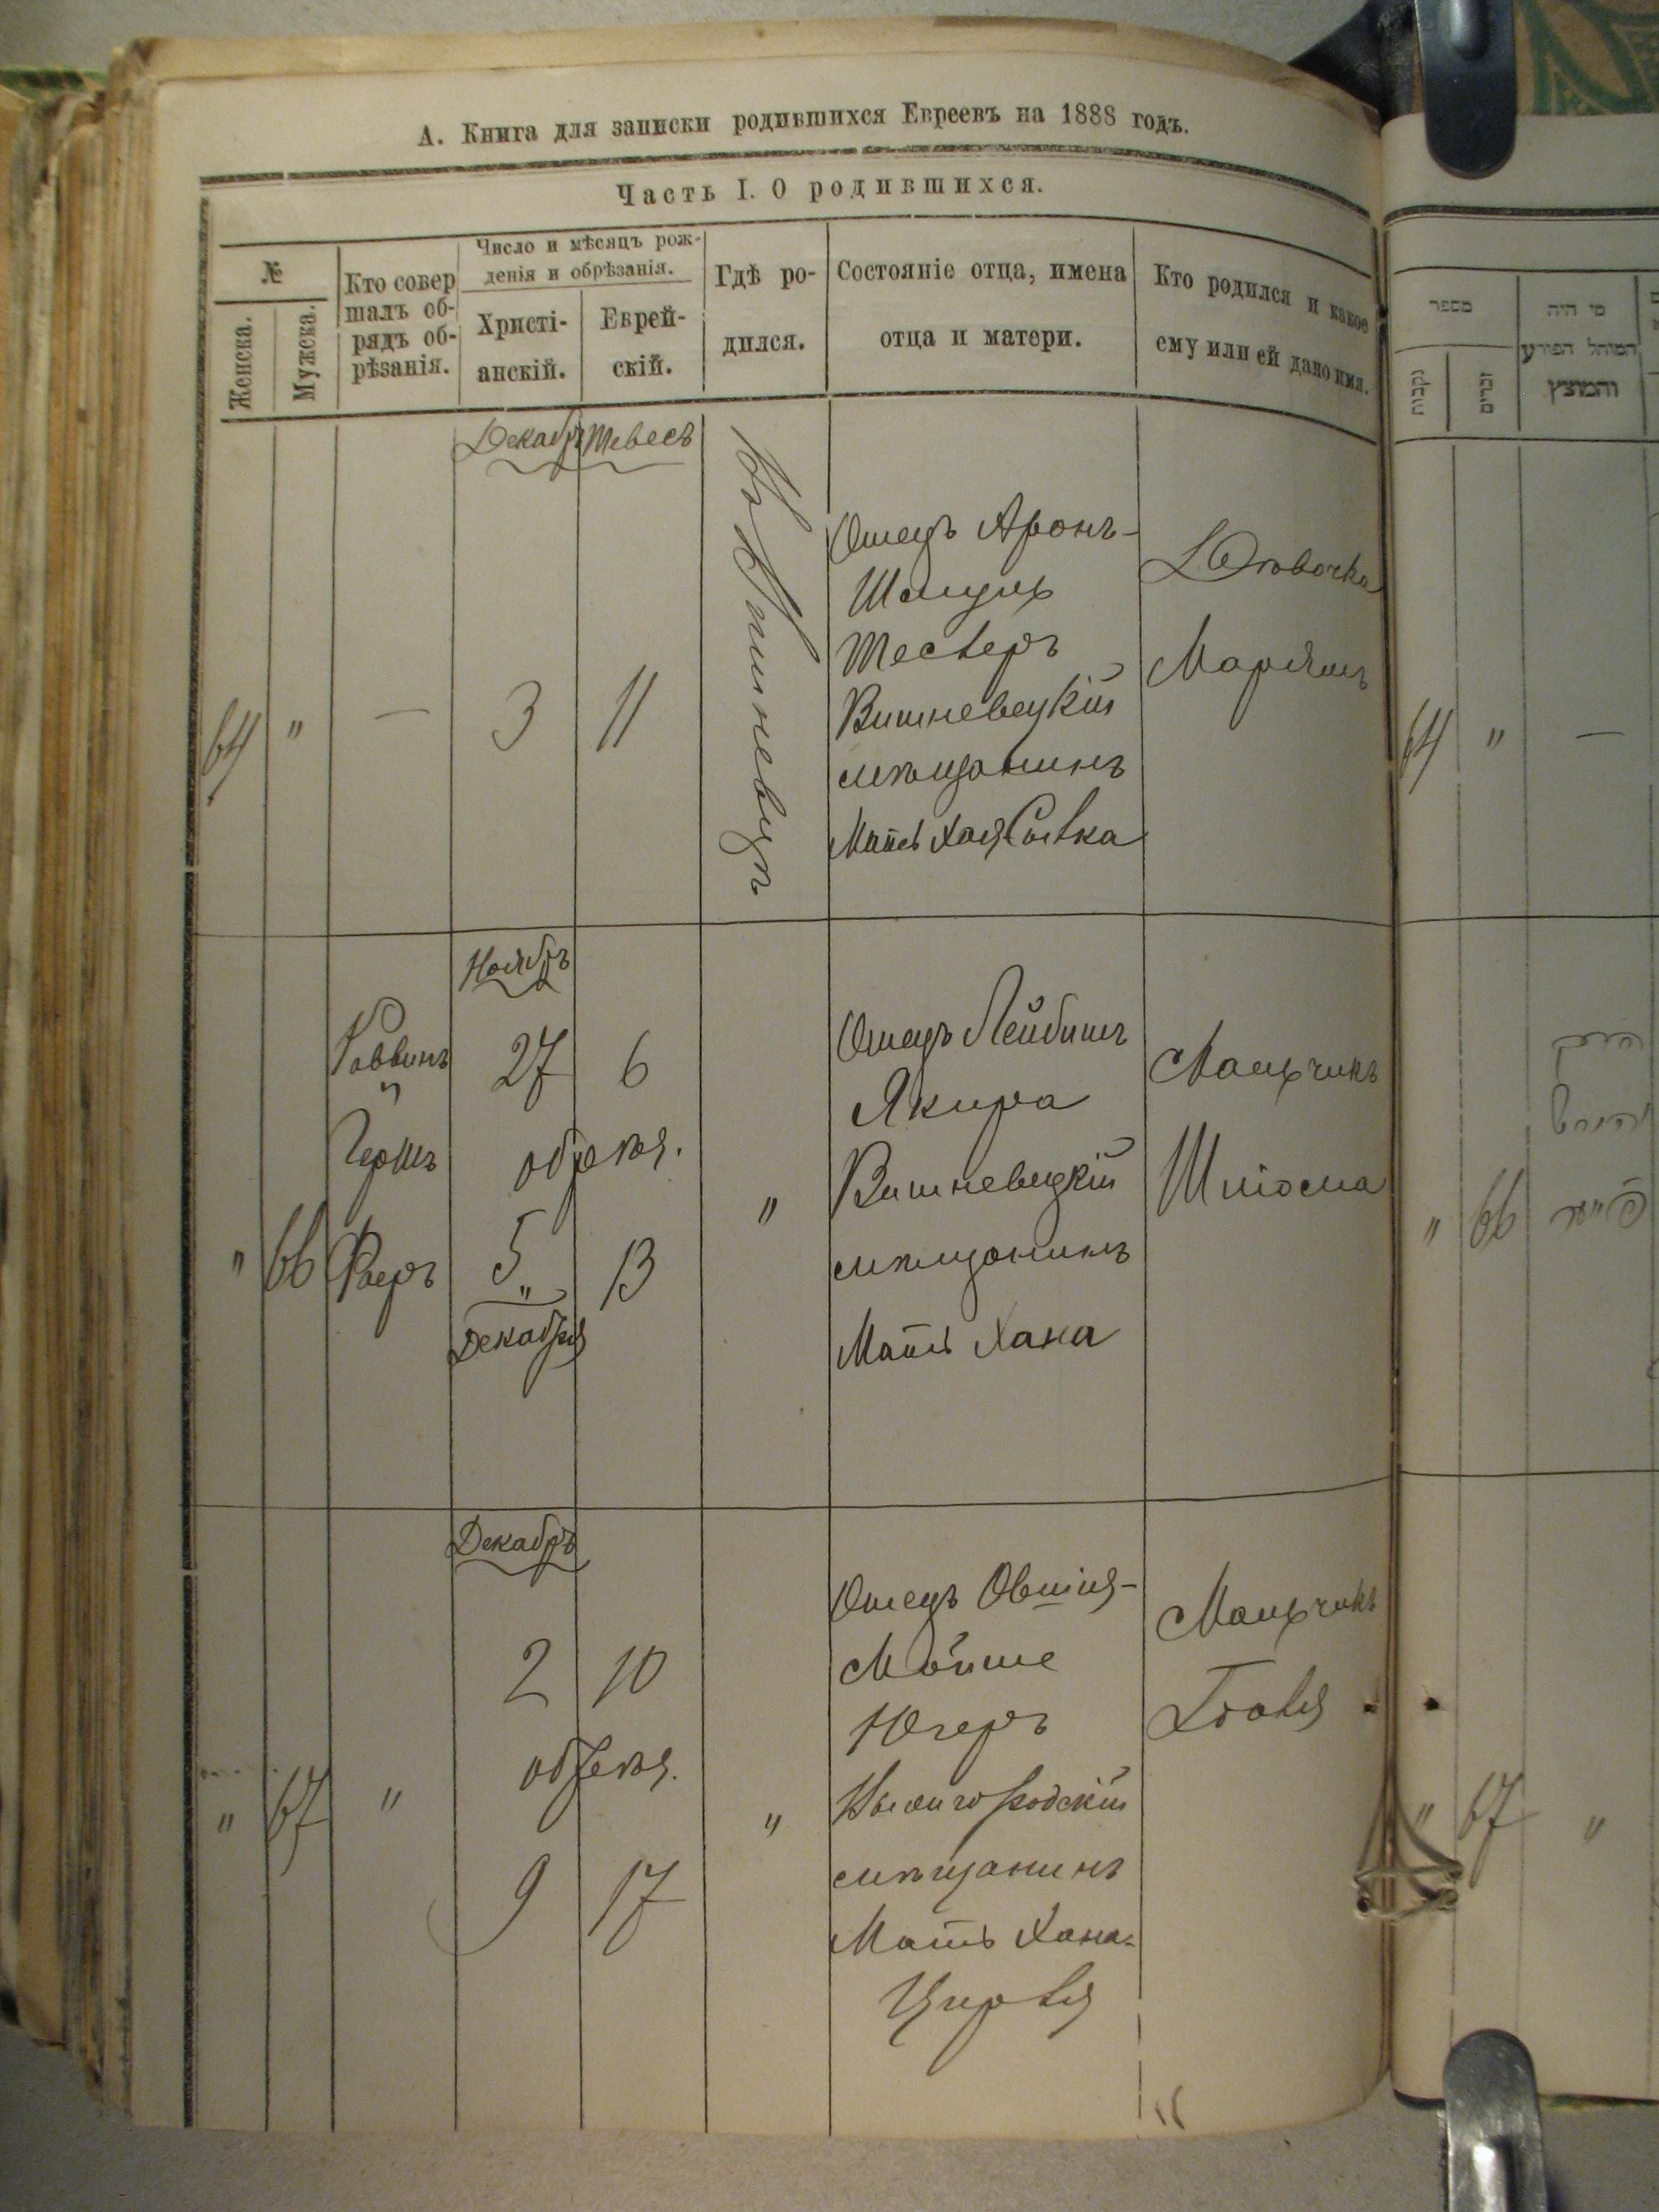 А. Книга для записки родившихся Евреевъ на 1888 годъ.
Часть I. О родившихся.
№
Женска.
Мужска.
Кто совер
шалъ об-
рядъ об-
рѣзанія.
Число и мѣсяцъ рож-
денія и обрѣзанія.
Христі-
анскій.
Еврей-
скій.
Гдѣ ро-
дился.
Состояніе отца, имена
отца и матери.
Кто родился и какое
ему или ей дано имя.
Декабрь Тевесъ
64 " — 3 11
Отецъ Аронъ-
Шмуль
Тестеръ
Вишневецкій
мѣщанинъ
Мать Хая
Дѣвочка
Маріямъ
Ноябрь
" 66
Раввинъ
Гершъ
27 6
обрѣз.
5 13
Декабря
"
Отецъ Лейбишъ
Якира
Вишневецкій
мѣщанинъ
Мать Хана
Мальчикъ
Шліома
Декабрь
" 67 "
2 10
обрѣз.
9 17
"
Отецъ Овшія-
Мойше
Югеръ
мѣщанинъ
Мать Хана-
Ципровя
Мальчикъ
מספר
נקבות
זכרים
מי היה
המוהל הפורע
והמוצץ
64 " —
" 66
" 67 "